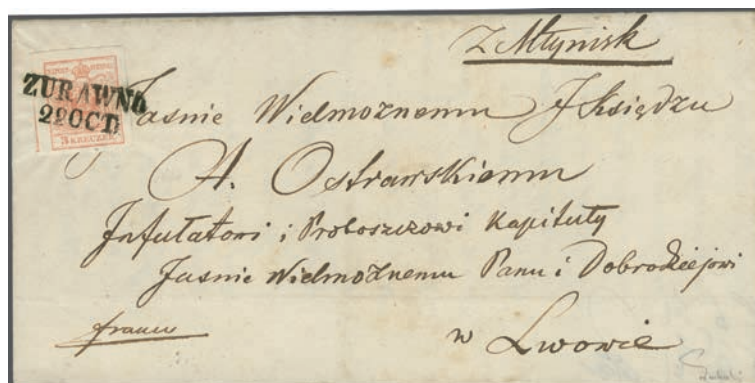 z Młynisk
ZURAWNO
22 OCT
3 KREUZER
Jasnie Wielmoznemu J Księdzu
A. Ostrawskiemu
Infułatowi i Proboszczowi Kapituły
Jasnie Wielmożnemu Panu i Dobrodziejowi
franco
w Lwowie